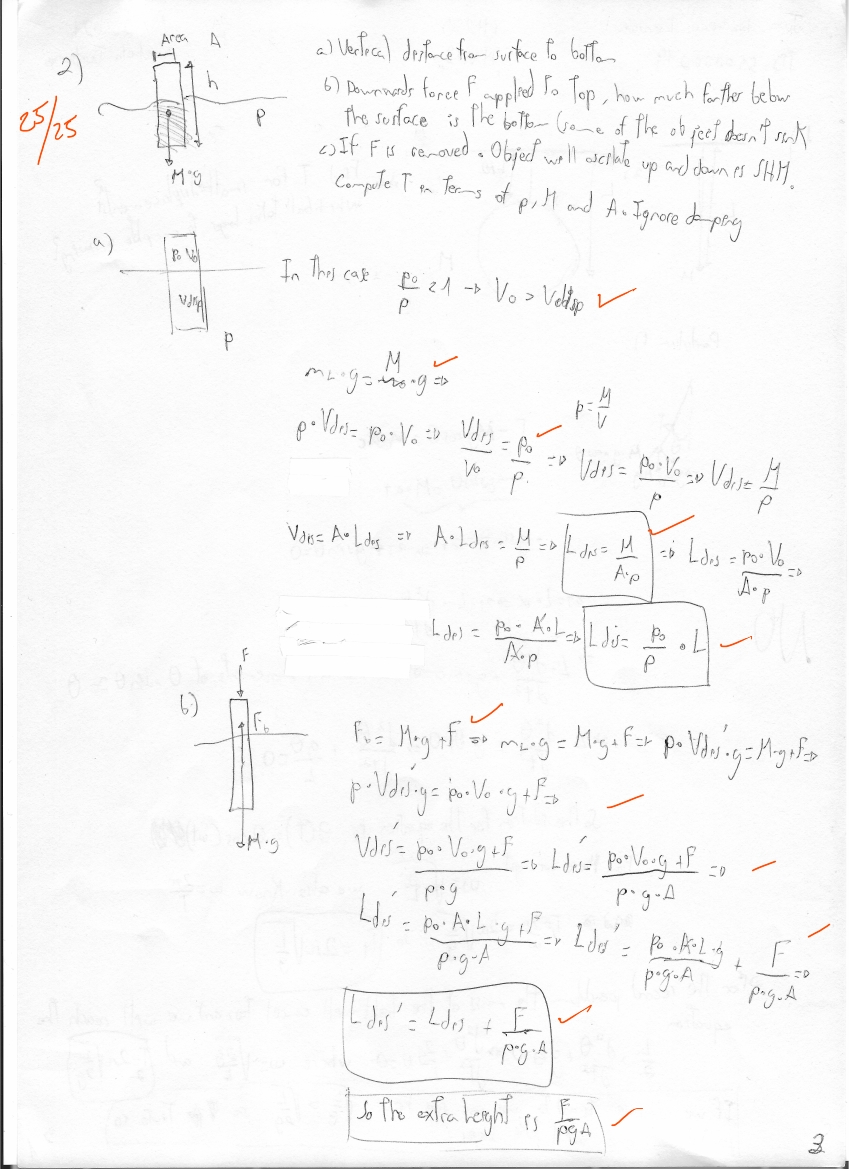 2)
25/25
Area A
h
p
M·g
a) Vertical distance from surface to bottom
b) Downwards force F applied to top, how much farther below
the surface is the bottom (some of the object doesn't sink
c) If F is removed. Object will oscilate up and down is SHM.
Compute T in terms of p, M and A. Ignore damping
a)
p₀ V₀
Vdisp
p
In this case p₀/p < 1 → V₀ > Vdisp
m_L·g = M·g ⇒
p = M/V
p·Vdis = p₀·V₀ ⇒ Vdis/V₀ = p₀/p ⇒ Vdis = p₀·V₀/p ⇒ Vdis = M/p
Vdis = A·Ldis ⇒ A·Ldis = M/p ⇒ Ldis = M/A·p ⇒ Ldis = p₀·V₀/A·p ⇒
Ldis = p₀·A·L/A·p ⇒ Ldis = p₀/p · L
b)
F
F_b
M·g
F_b = M·g + F ⇒ m_L·g = M·g + F ⇒ p·Vdis'·g = M·g + F ⇒
p·Vdis'·g = p₀·V₀·g + F ⇒
Vdis' = p₀·V₀·g + F/p·g ⇒ Ldis' = p₀·V₀·g + F/p·g·A ⇒
Ldis' = p₀·A·L·g + F/p·g·A ⇒ Ldis' = p₀·A·L·g/p·g·A + F/p·g·A ⇒
Ldis' = Ldis + F/p·g·A
So the extra height is F/pgA
3